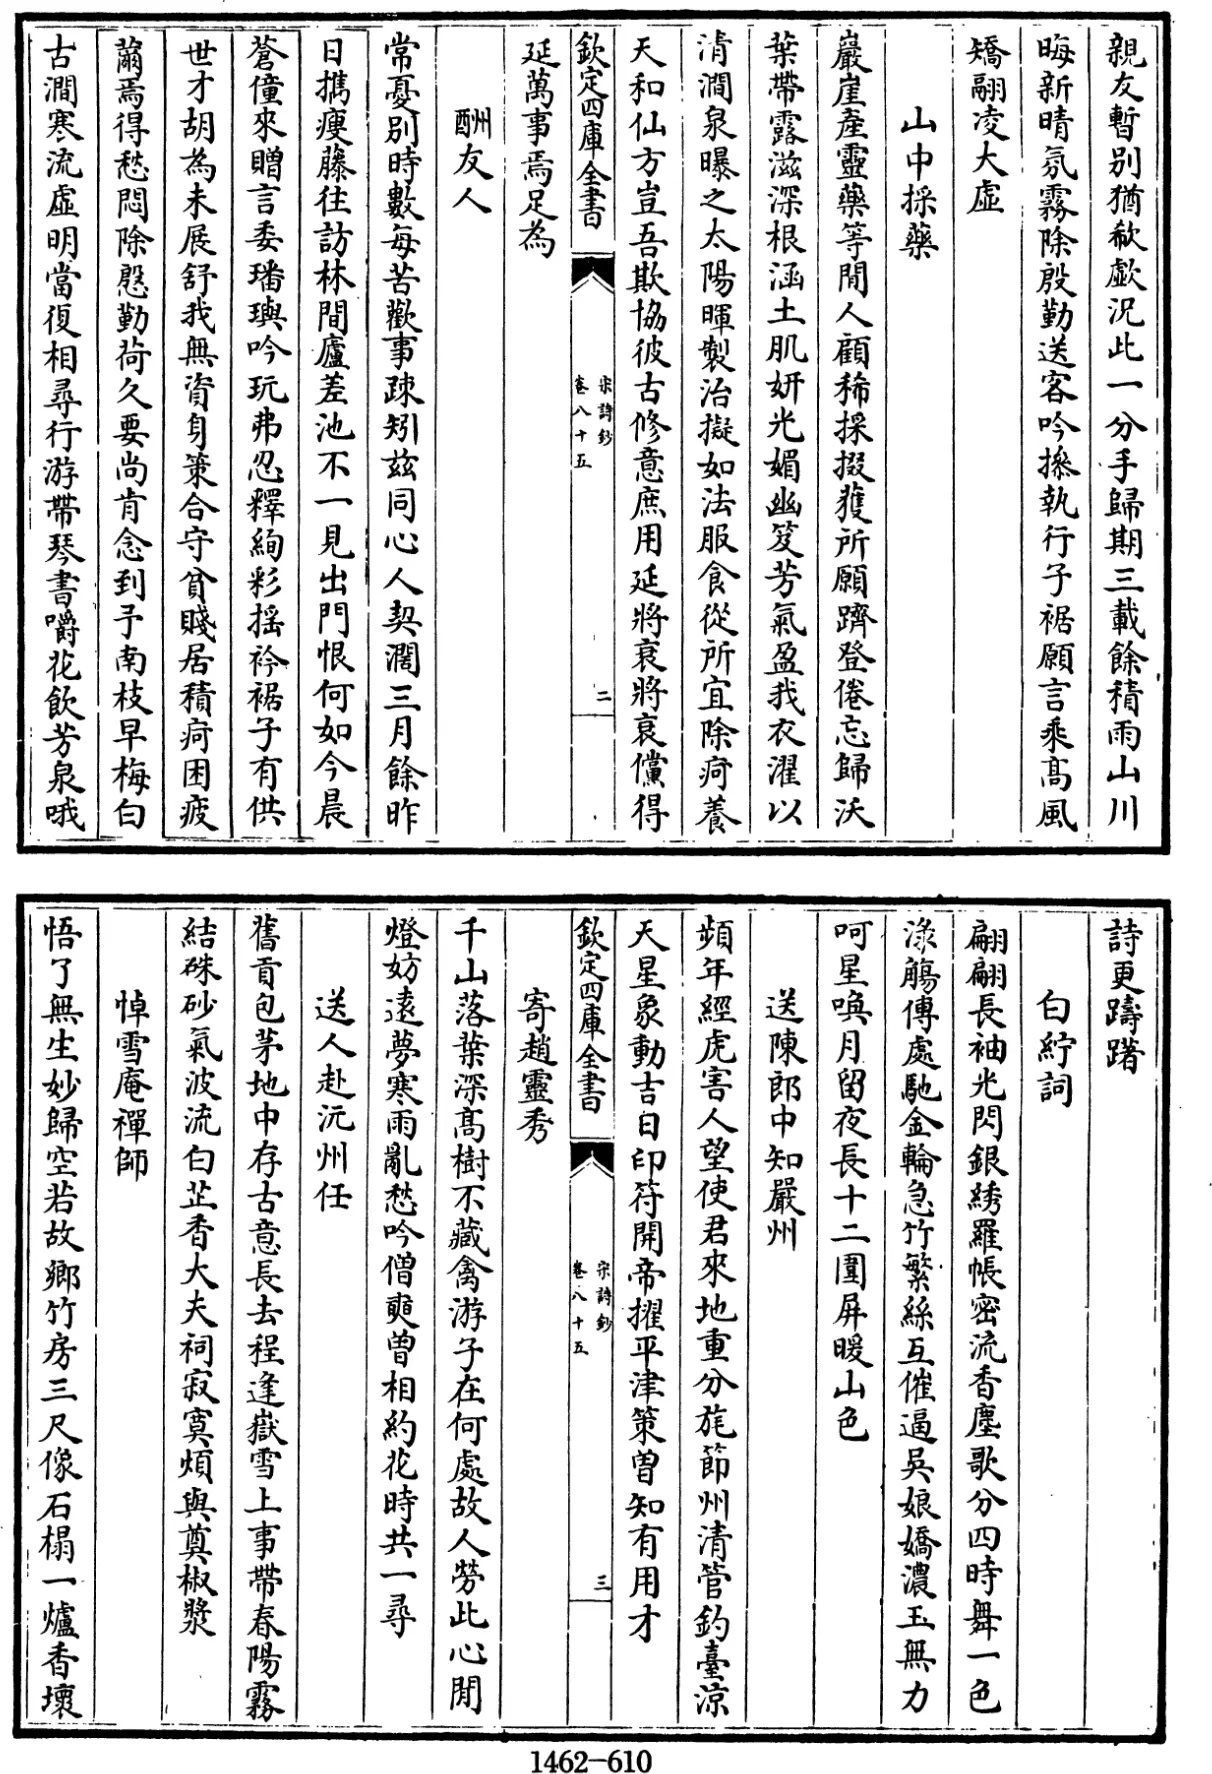 親友暫别猶欷歔況此一分手歸期三載餘積雨山川
晦新晴氛霧除殷勤送客吟摻執行子裾願言乘高風
矯翮凌大虛
山中採藥
巖崖産靈藥等閒人顧稀採掇獲所願躋登倦忘歸沃
葉帶露滋深根涵土肌妍光媚幽笈芳氣盈我衣濯以
清澗泉曝之太陽暉製治擬如法服食從所宜除疴養
天和仙方豈吾欺協彼古修意庶用延將衰將衰儻得
欽定四庫全書
宋詩鈔
卷八十五
二
延萬事焉足為
酬友人
常憂别時數每苦歡事疎矧兹同心人契濶三月餘昨
日攜瘦藤往訪林間廬差池不一見出門恨何如今晨
蒼僮來贈言委璠璵吟玩弗忍釋絢彩摇衿裾子有供
世才胡為未展舒我無資身策合守貧賤居積疴困疲
薾焉得愁悶除慇勤荷久要尚肯念到予南枝早梅白
古澗寒流虛明當復相尋行游帶琴書嚼花飲芳泉哦
詩更躊躇
白紵詞
翩翩長袖光閃銀綉羅帳密流香塵歌分四時舞一色
淥觴傳處馳金輪急竹繁絲互催逼吳娘嬌濃玉無力
呵星喚月留夜長十二圍屏暖山色
送陳郎中知嚴州
頻年經虎害人望使君來地重分旄節州清管釣臺涼
天星象動吉日印符開帝擢平津策曾知有用才
欽定四庫全書
宋詩鈔
卷八十五
三
寄趙靈秀
千山落葉深高樹不藏禽游子在何處故人勞此心閒
燈妨遠夢寒雨亂愁吟僧奭曾相約花時共一尋
送人赴沅州任
舊貢包茅地中存古意長去程逢嶽雪上事帶春陽霧
結硃砂氣波流白芷香大夫祠寂寞煩與奠椒漿
悼雪庵禪師
悟了無生妙歸空若故鄉竹房三尺像石榻一爐香壞
1462-610